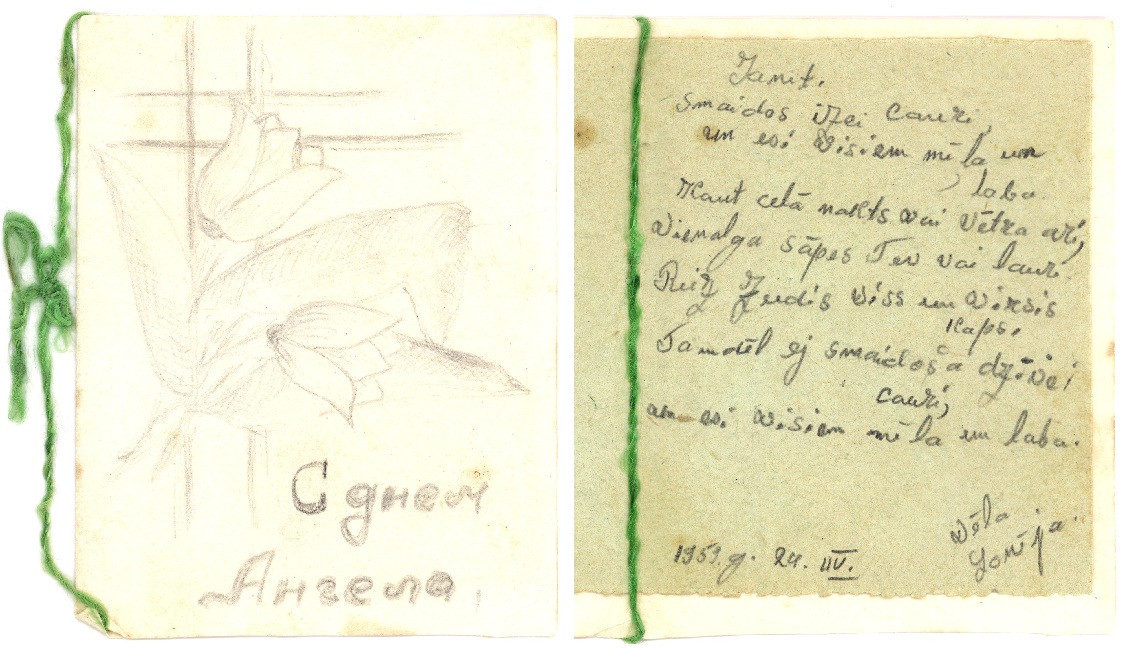 С днем
Ангела,
Janit.
Smaidos izei cauri,
un esi visiem mīļa un
laba.
Kaut ceļā nakts vai vētra arī,
Vienalga sāpes Tev vai lauri.
Reiz zudīs viss un virsis
kaps.
Tamdēļ ej smaidoša dzīvei
cauri,
un esi visiem mīļa un laba.
Vēla
1959. g. 24. IV.